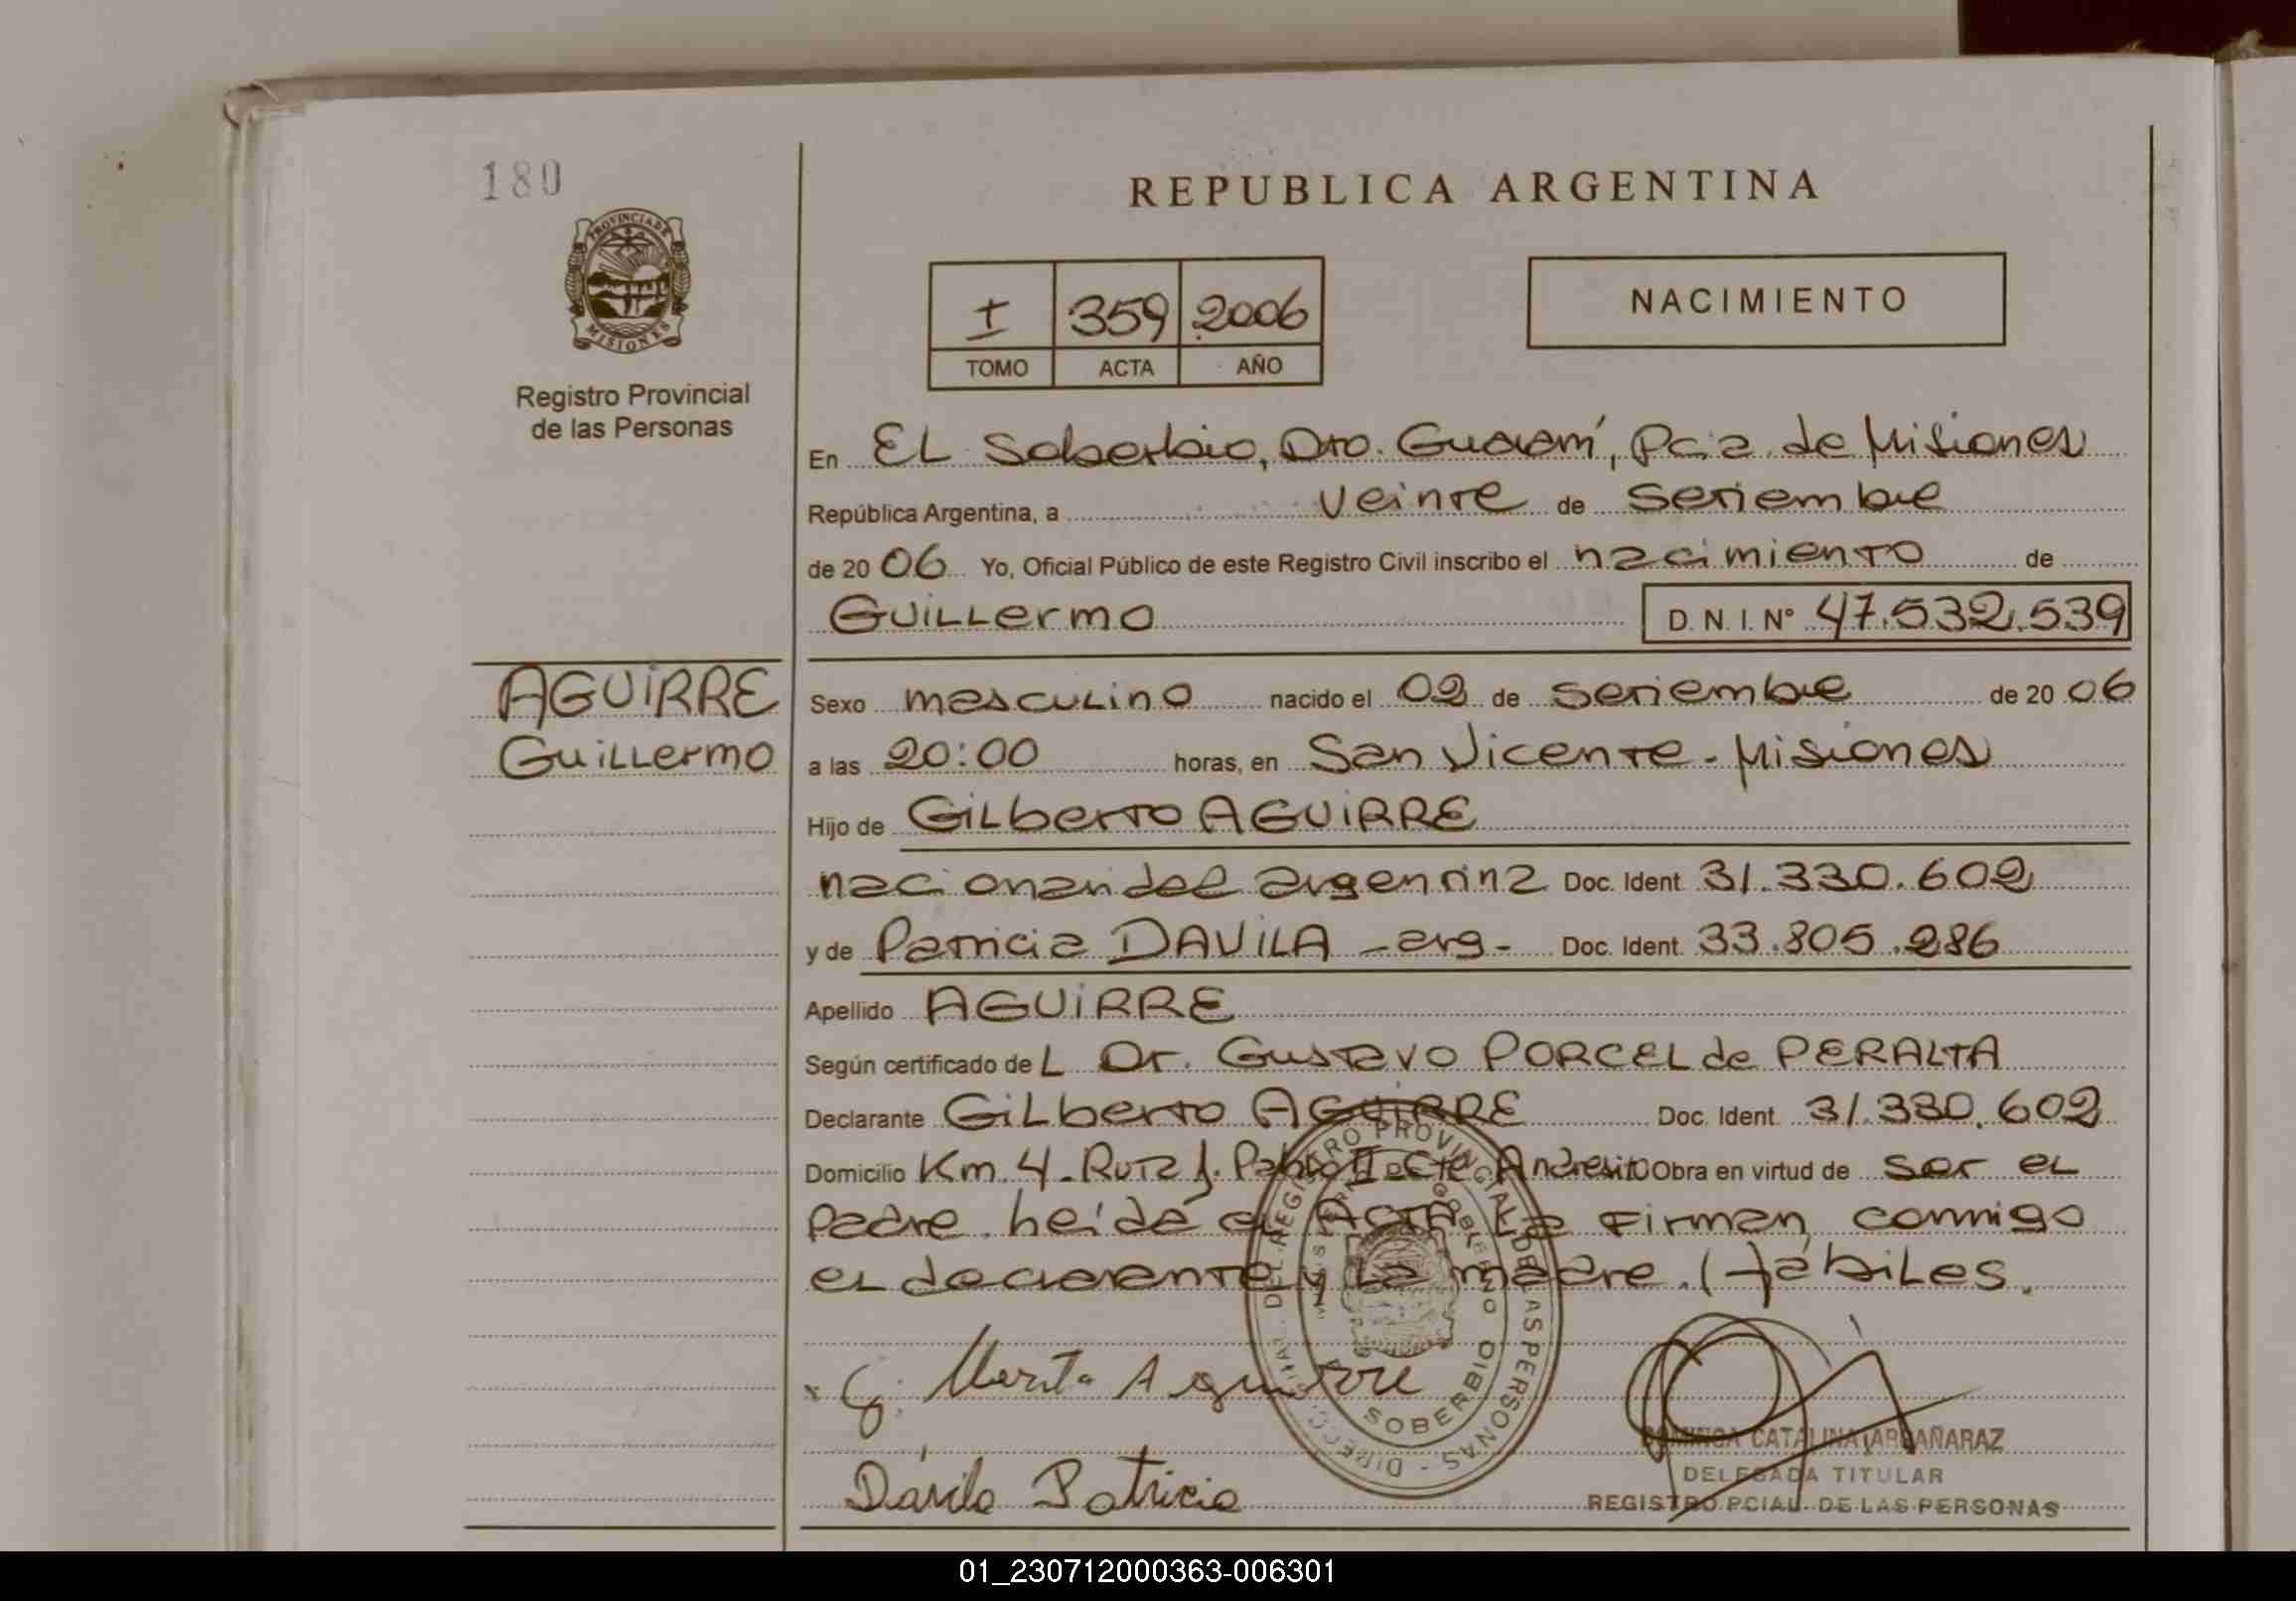 180
PROVINCIA DE
MISIONES
Registro Provincial
de las Personas
REPUBLICA ARGENTINA
I 359 2006
TOMO ACTA AÑO
NACIMIENTO
En EL Soberbio, Dto. Guaraní, Pcia. de Misiones
República Argentina, a veinte de setiembre
de 2006 Yo, Oficial Público de este Registro Civil inscribo el nacimiento de
Guillermo D. N. I. Nº 47.532.539
AGUIRRE
Guillermo
Sexo masculino nacido el 02 de setiembre de 2006
a las 20:00 horas, en San Vicente - Misiones
Hijo de Gilberto AGUIRRE
nacionalidad argentina Doc. Ident. 31.330.602
y de Patricia DAVILA - arg - Doc. Ident. 33.805.286
Apellido AGUIRRE
Según certificado del Dr. Gustavo PORCEL de PERALTA
Declarante Gilberto AGUIRRE Doc. Ident. 31.330.602
Domicilio Km. 4 - Ruta J. Pablo II - Cte Andresito Obra en virtud de ser el
Padre. heída el Acta la Firman conmigo
el declarante y la madre. Hábiles.
G. Aguirre
Dávila Patricia
DIRECCION DEL REGISTRO PROVINCIAL DE LAS PERSONAS
GOBIERNO
SOBERBIO
DOMINGA CATALINA ARGAÑARAZ
DELEGADA TITULAR
REGISTRO PCIAL DE LAS PERSONAS
01_230712000363-006301